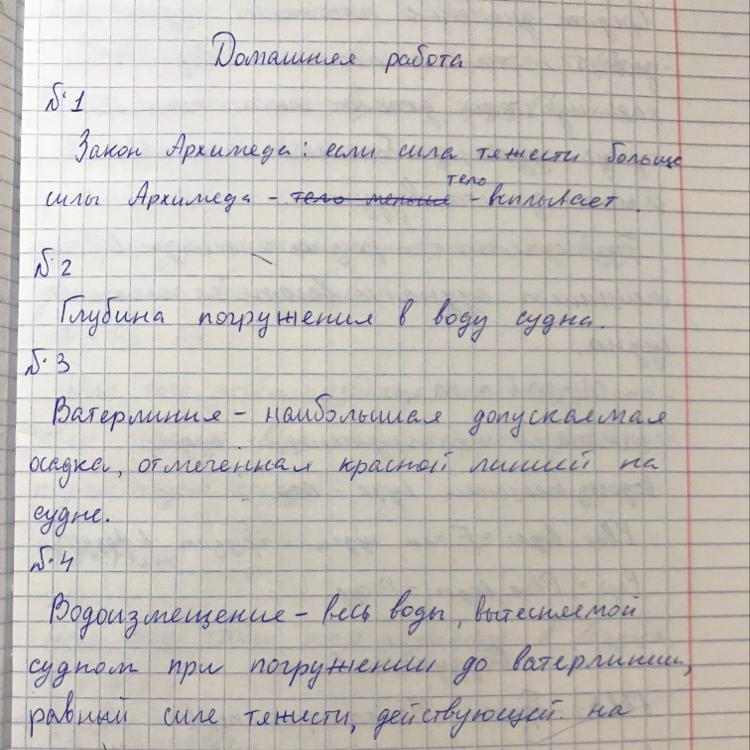 Домашняя работа
№1
Закон Архимеда: если сила тяжести больше
тело
силы Архимеда - тело меньше - всплывает.
№2
Глубина погружения в воду судна.
№3
Ватерлиния - наибольшая допускаемая
осадка, отмеченная красной линией на
судне.
№4
Водоизмещение - весь воды, вытесняемой
судном при погружении до ватерлинии,
равный силе тяжести, действующей на